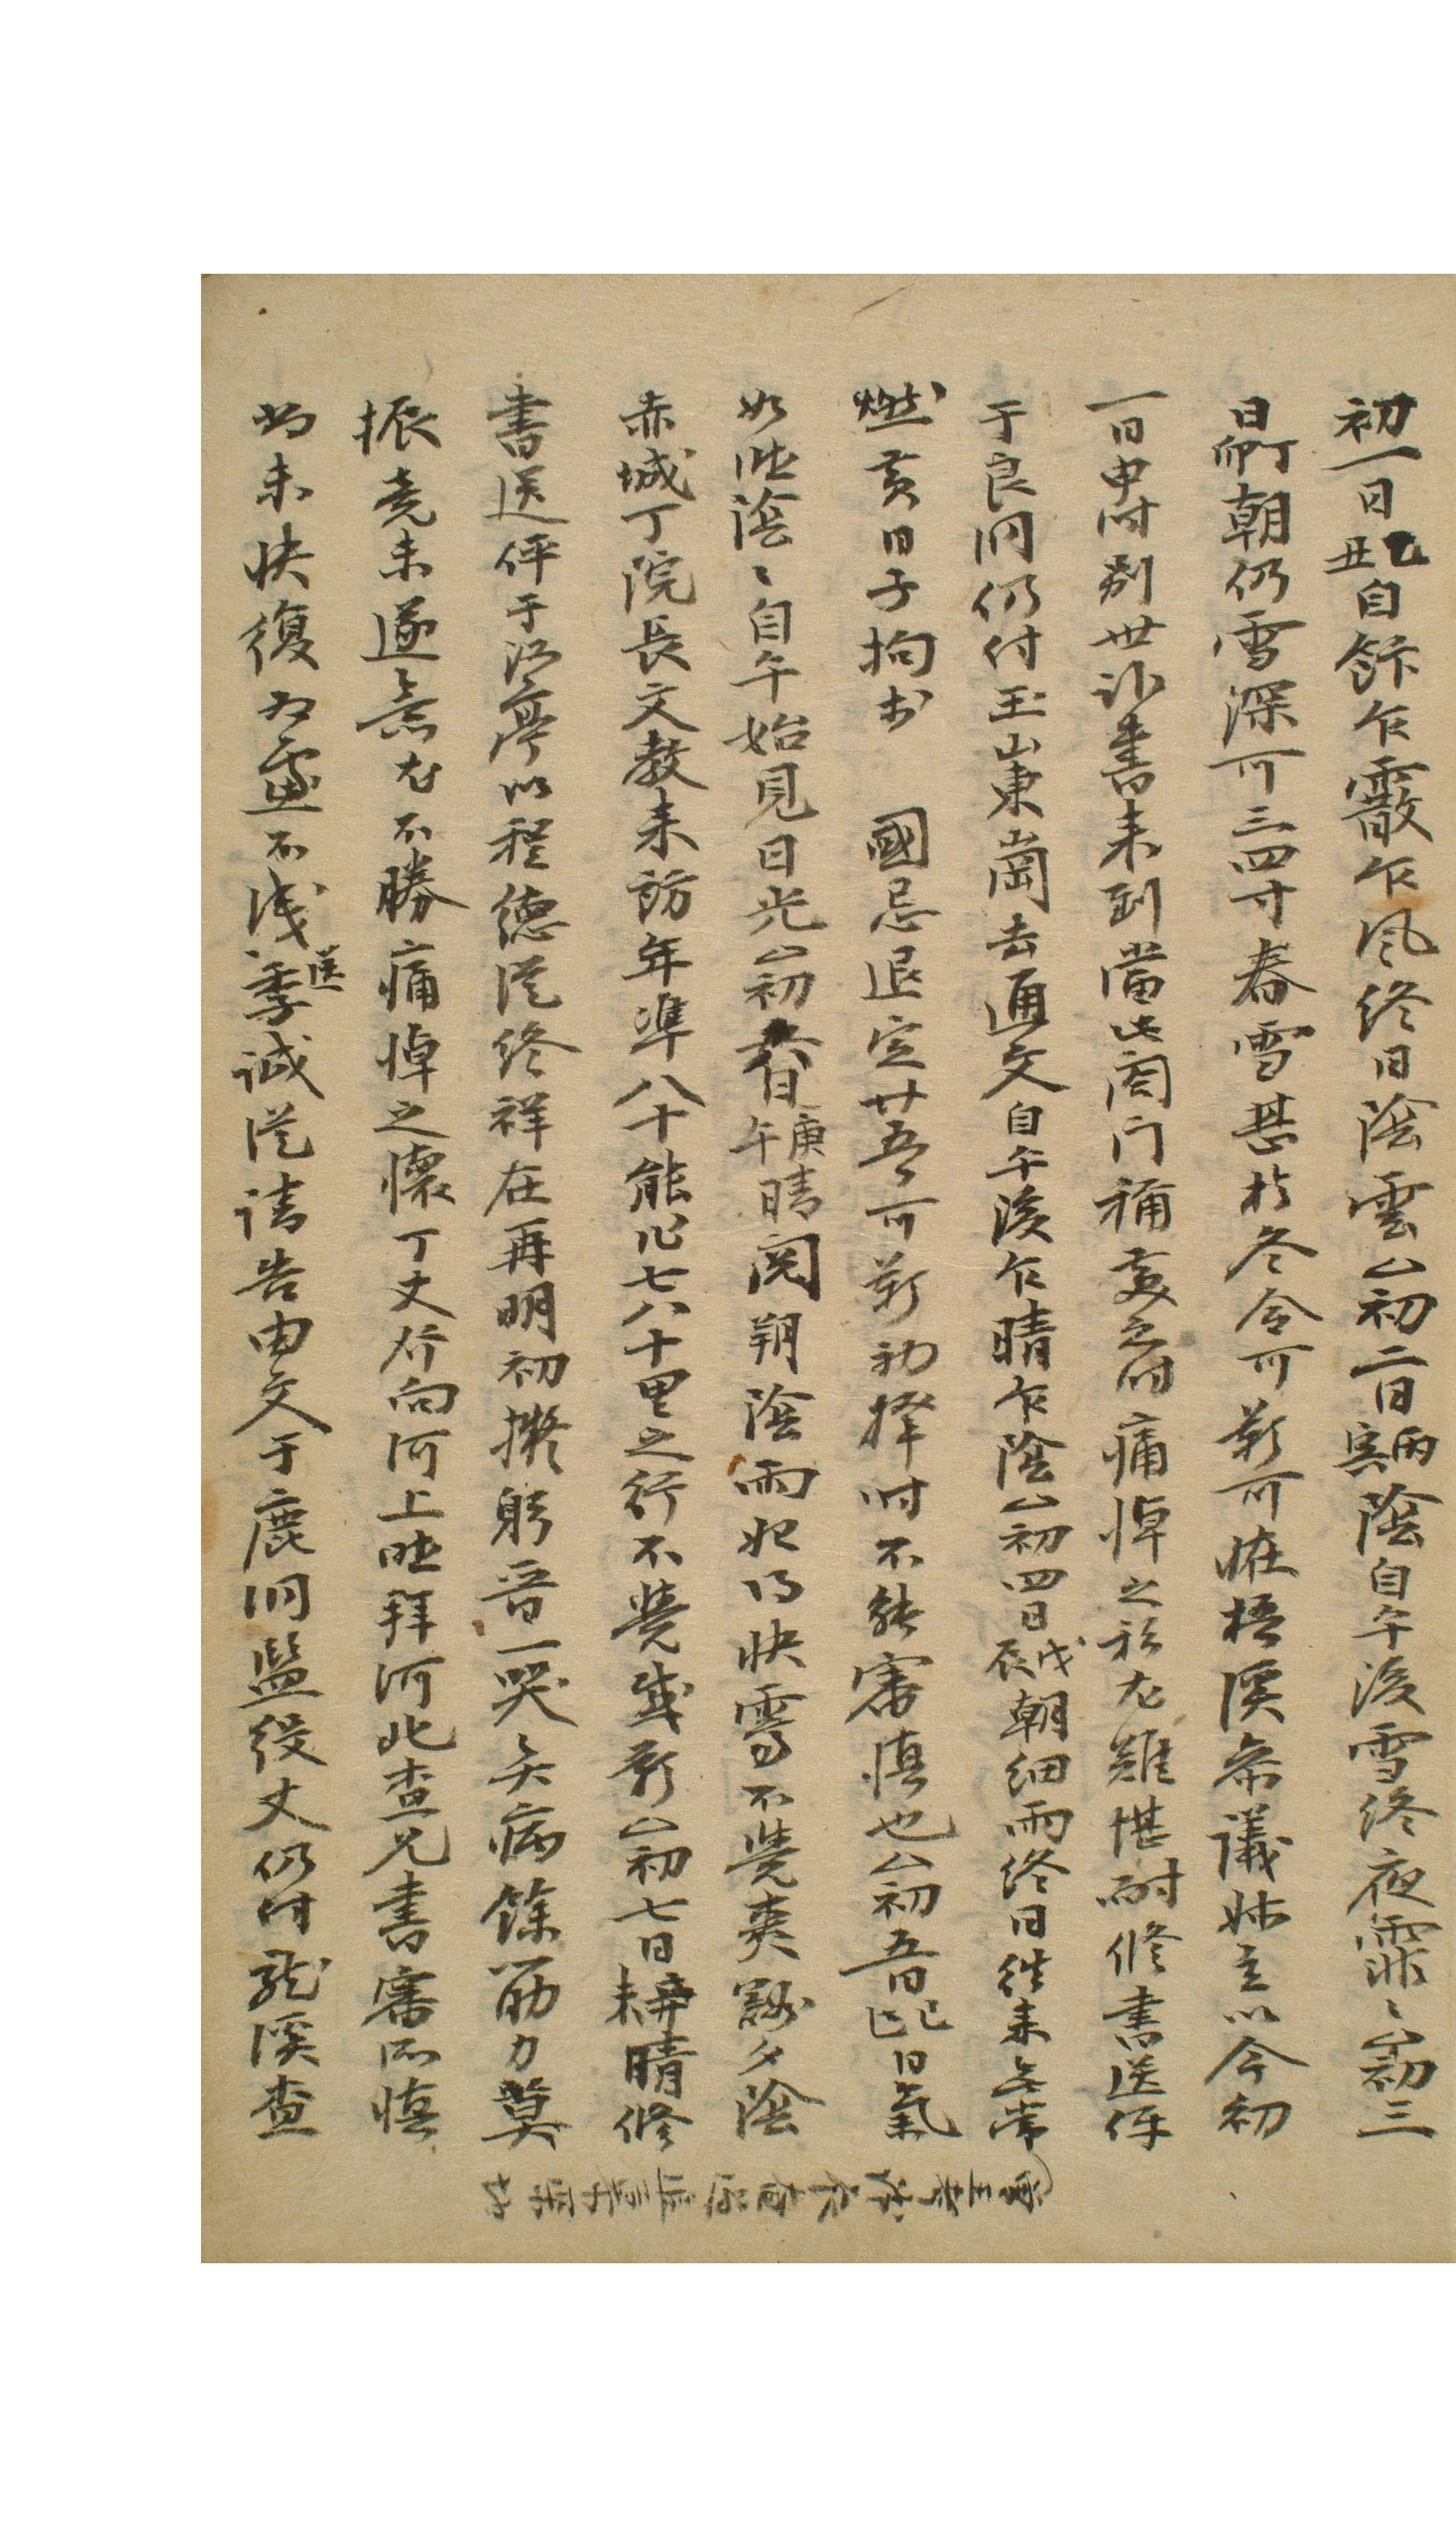 初一日乙丑自飰乍霰乍風終日陰雲△初二日丙寅陰自午後雪終夜霏〻△初三
日丁卯朝仍雪深可三四寸春雪甚於冬令可歎可恠梧溪希議姊主以今初
一日申时別世訃書来到當此闔门禍变之时痛悼之私尤難堪耐修書送伻
于良洞仍付玉山東崗去通文自午後乍晴乍陰△初四日戊辰朝細雨終日往来無常
燃黄日子拘於 國忌退定廿五可歎初擇时不能審慎也△初五日己巳日氣
如昨陰〻自午始見日光△初六日庚午晴閱朔陰雨妃得快霽不覺爽豁夕陰
赤城丁院長文教来訪年準八十能作七八十里之行不覺感歎△初七日辛未晴修
書送伻于江亭以程德從終祥在再明初擬躬晉一哭矣病餘筋力莫
振竟未遂意尤不勝痛悼之懷丁丈行向河上昨拜河北查兄書審所慎
尚未快復为慮不淺送季誠從請告由文于鹿洞監役丈仍付龍溪查